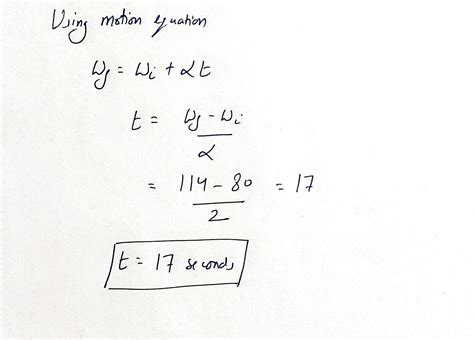 Using motion equation
ωf = ωi + αt
t = ωf - ωi
α
= 114 - 80 = 17
2
t = 17 seconds